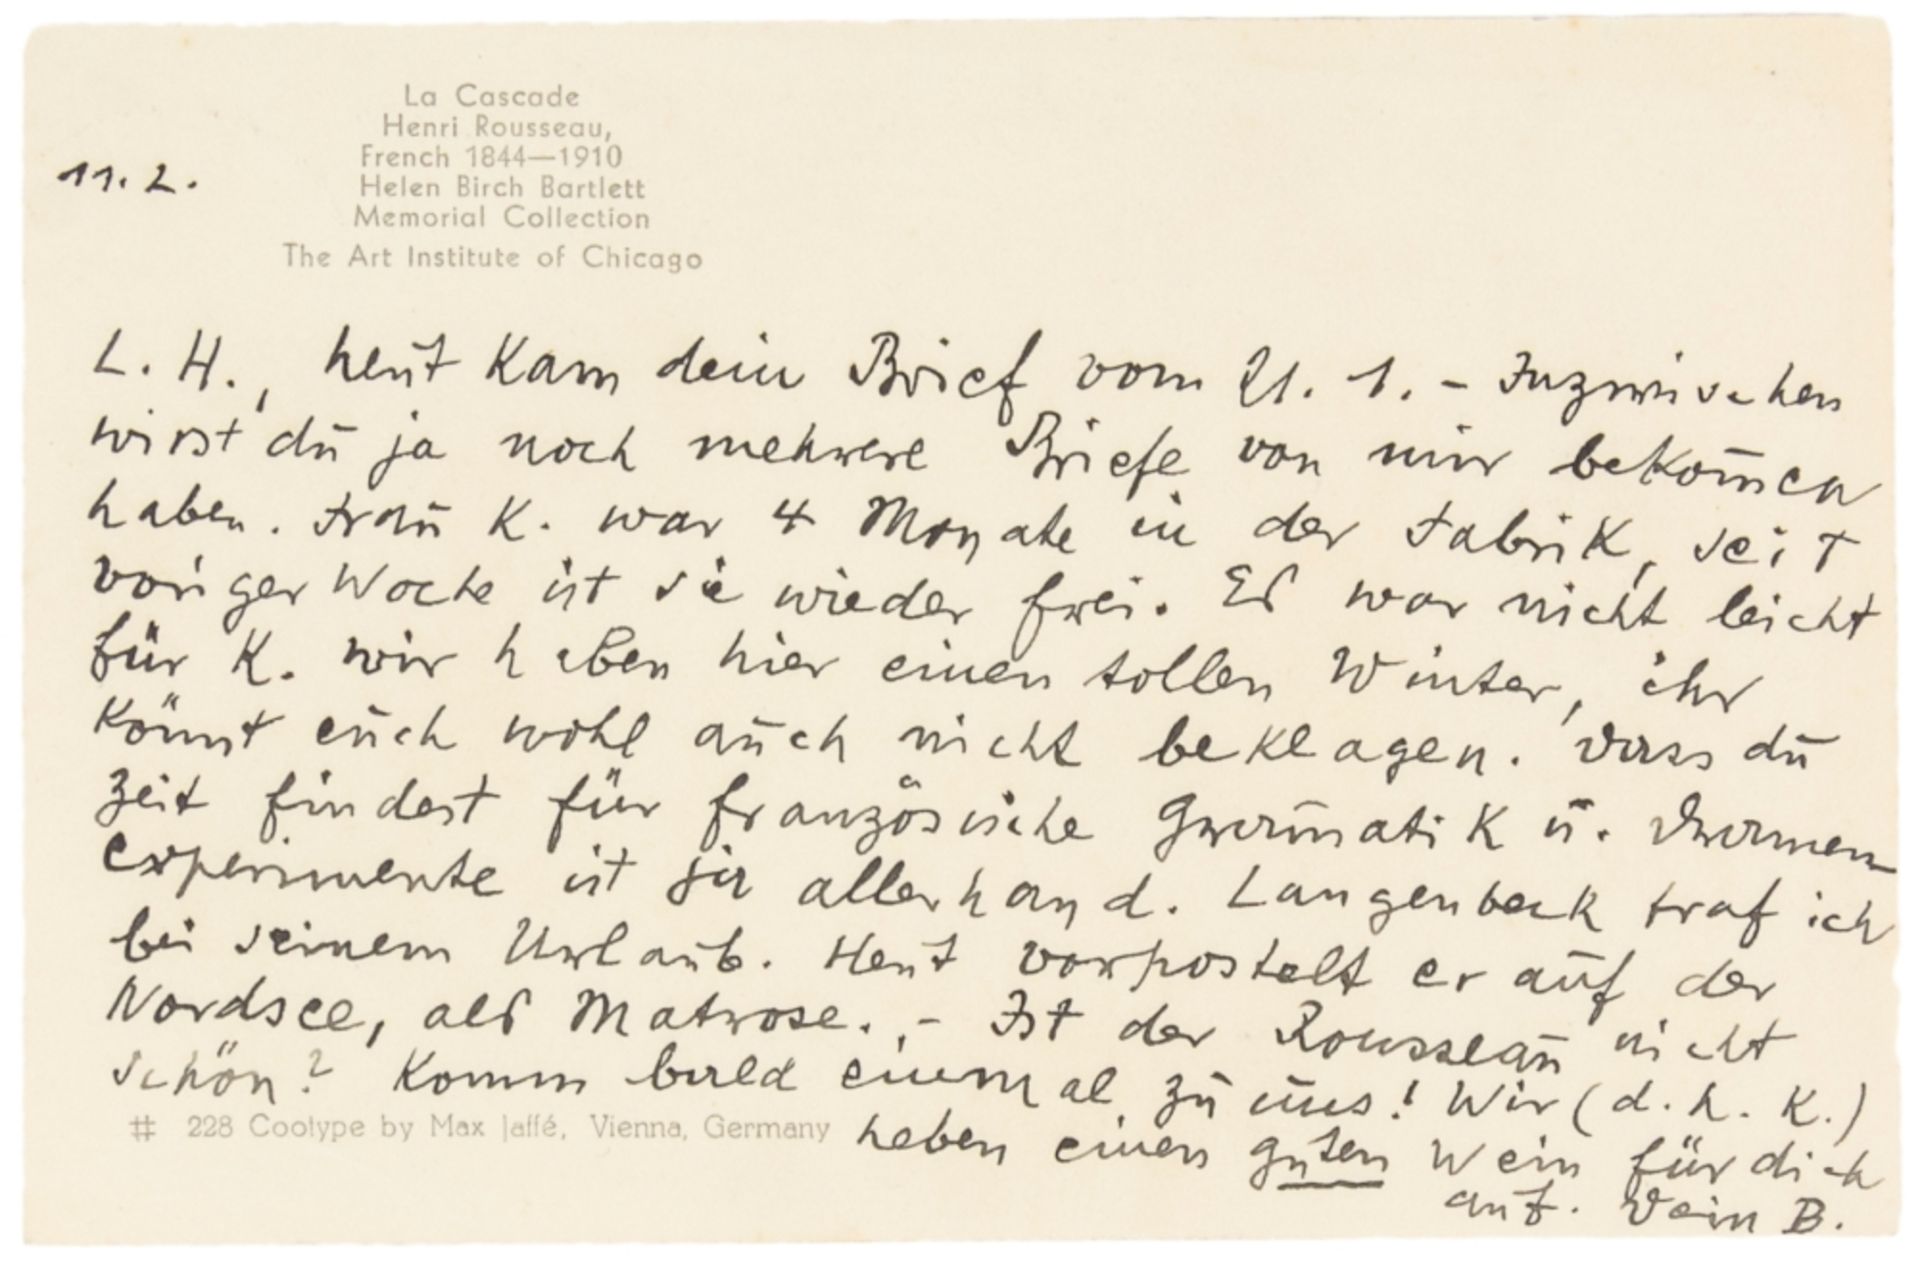 La Cascade
Henri Rousseau,
French 1844—1910
11. 2.
Helen Birch Bartlett
Memorial Collection
The Art Institute of Chicago
L. H., heut kam dein Brief vom 21. 1. – Inzwischen
wirst du ja noch mehrere Briefe von mir bekom̄en
haben. Frau K. war 4 Monate in der Fabrik, seit
voriger Woche ist sie wieder frei. Es war nicht leicht
für K. wir haben hier einen tollen Winter, ihr
könnt euch wohl auch nicht beklagen. Dass du
Zeit findest für französische Gram̄atik u. Dramen
experimente ist ja allerhand. Langenbeck traf ich
bei seinem Urlaub. Heut vorpostelt er auf der
Nordsee, als Matrose. – Ist der Rousseau nicht
schön? Komm bald einmal zu uns! Wir (d. h. K.)
# 228 Cootype by Max Jaffé, Vienna, Germany
heben einen guten Wein für dich
auf. Dein B.